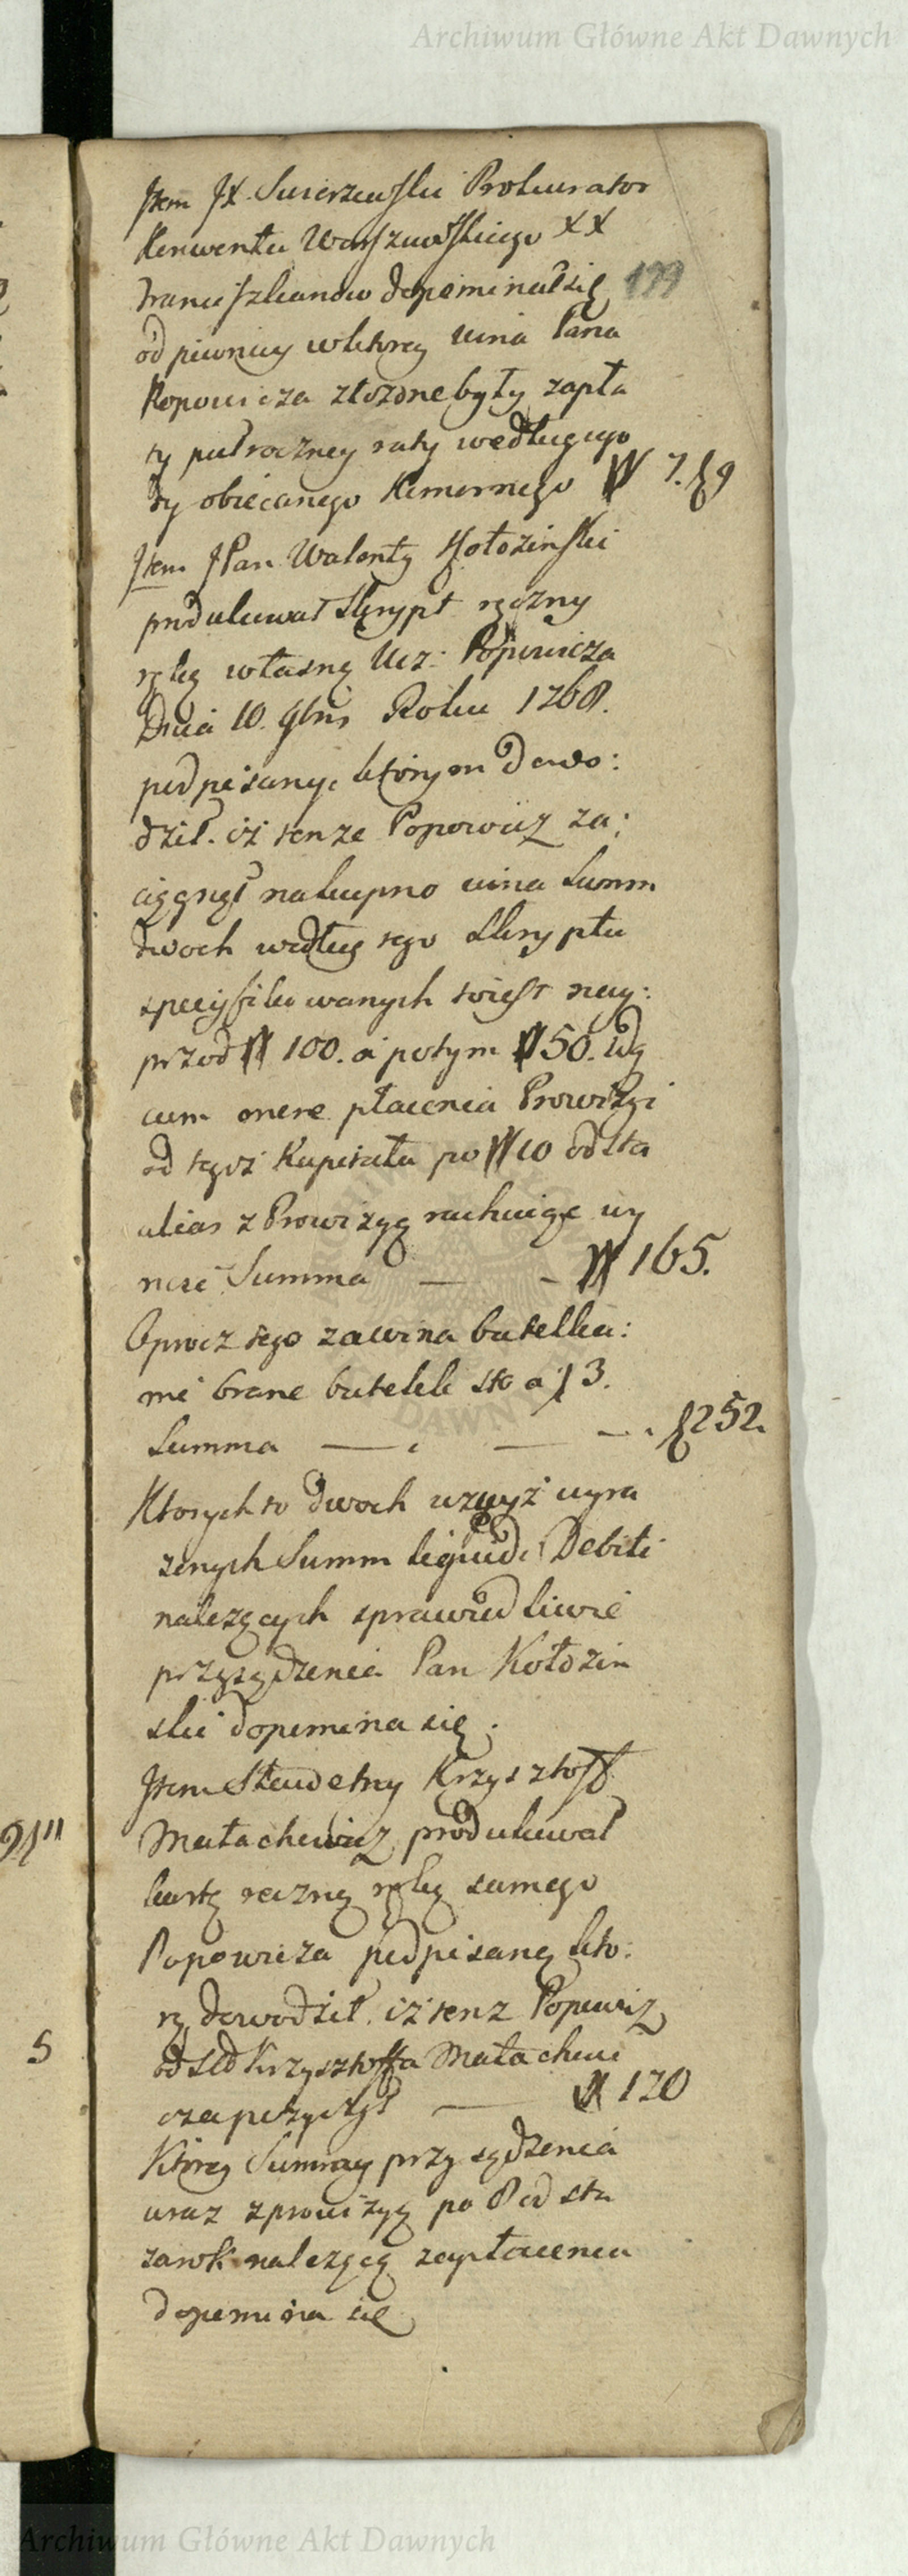 Archiwum Główne Akt Dawnych
Item JX. Swierzewski Prokurator
Konwentu Warszawskiego XX
Franciszkanow dopominał się
199
od piwnicy w ktorey wina Pana
Popowicza złożone były zapła
ty pułroczney raty według ugo
dy obiecanego Komornego # 7. f 9
Item JPan Walenty Kołozinski
produkował skrypt ręczny
ręką własną Ucz: Popowicza
Dnia 10. 9bris Roku 1768.
podpisany, ktorym dowo:
dził. iż tenze Popowicz za:
ciągnął na kupno wina summ
dwoch według tego skryptu
specyfikowanych to iest nay:
przod # 100. a potym # 50.
cum onere płacenia Prowizyi
od tegoż Kapitału po # 10 od sta
alias z Prowizyą rachuiąc wy
nosi Summa — - # 165.
Oprocz tego za wina butelka:
mi brane butelek sto a f 3.
Summa — — - . f 252.
Ktorych to dwoch wzwyż wyra
zonych Summ liquidi Debiti
należących sprawiedliwie
przysądzenia Pan Kołdzin
ski dopomina się.
Item Sławetny Krzysztoff
Małachowicz produkował
kartę ręczną ręką samego
Popowicza podpisaną kto:
rą dowodził. iż tenz Popowicz
od Sld Krzysztoffa Małachowi
cza pożyczył — # 120
Ktorey Summy przysądzenia
wraz z prowizyą po 8 od sta
za rok należącą zapłacenia
dopomina się
5
Archiwum Główne Akt Dawnych